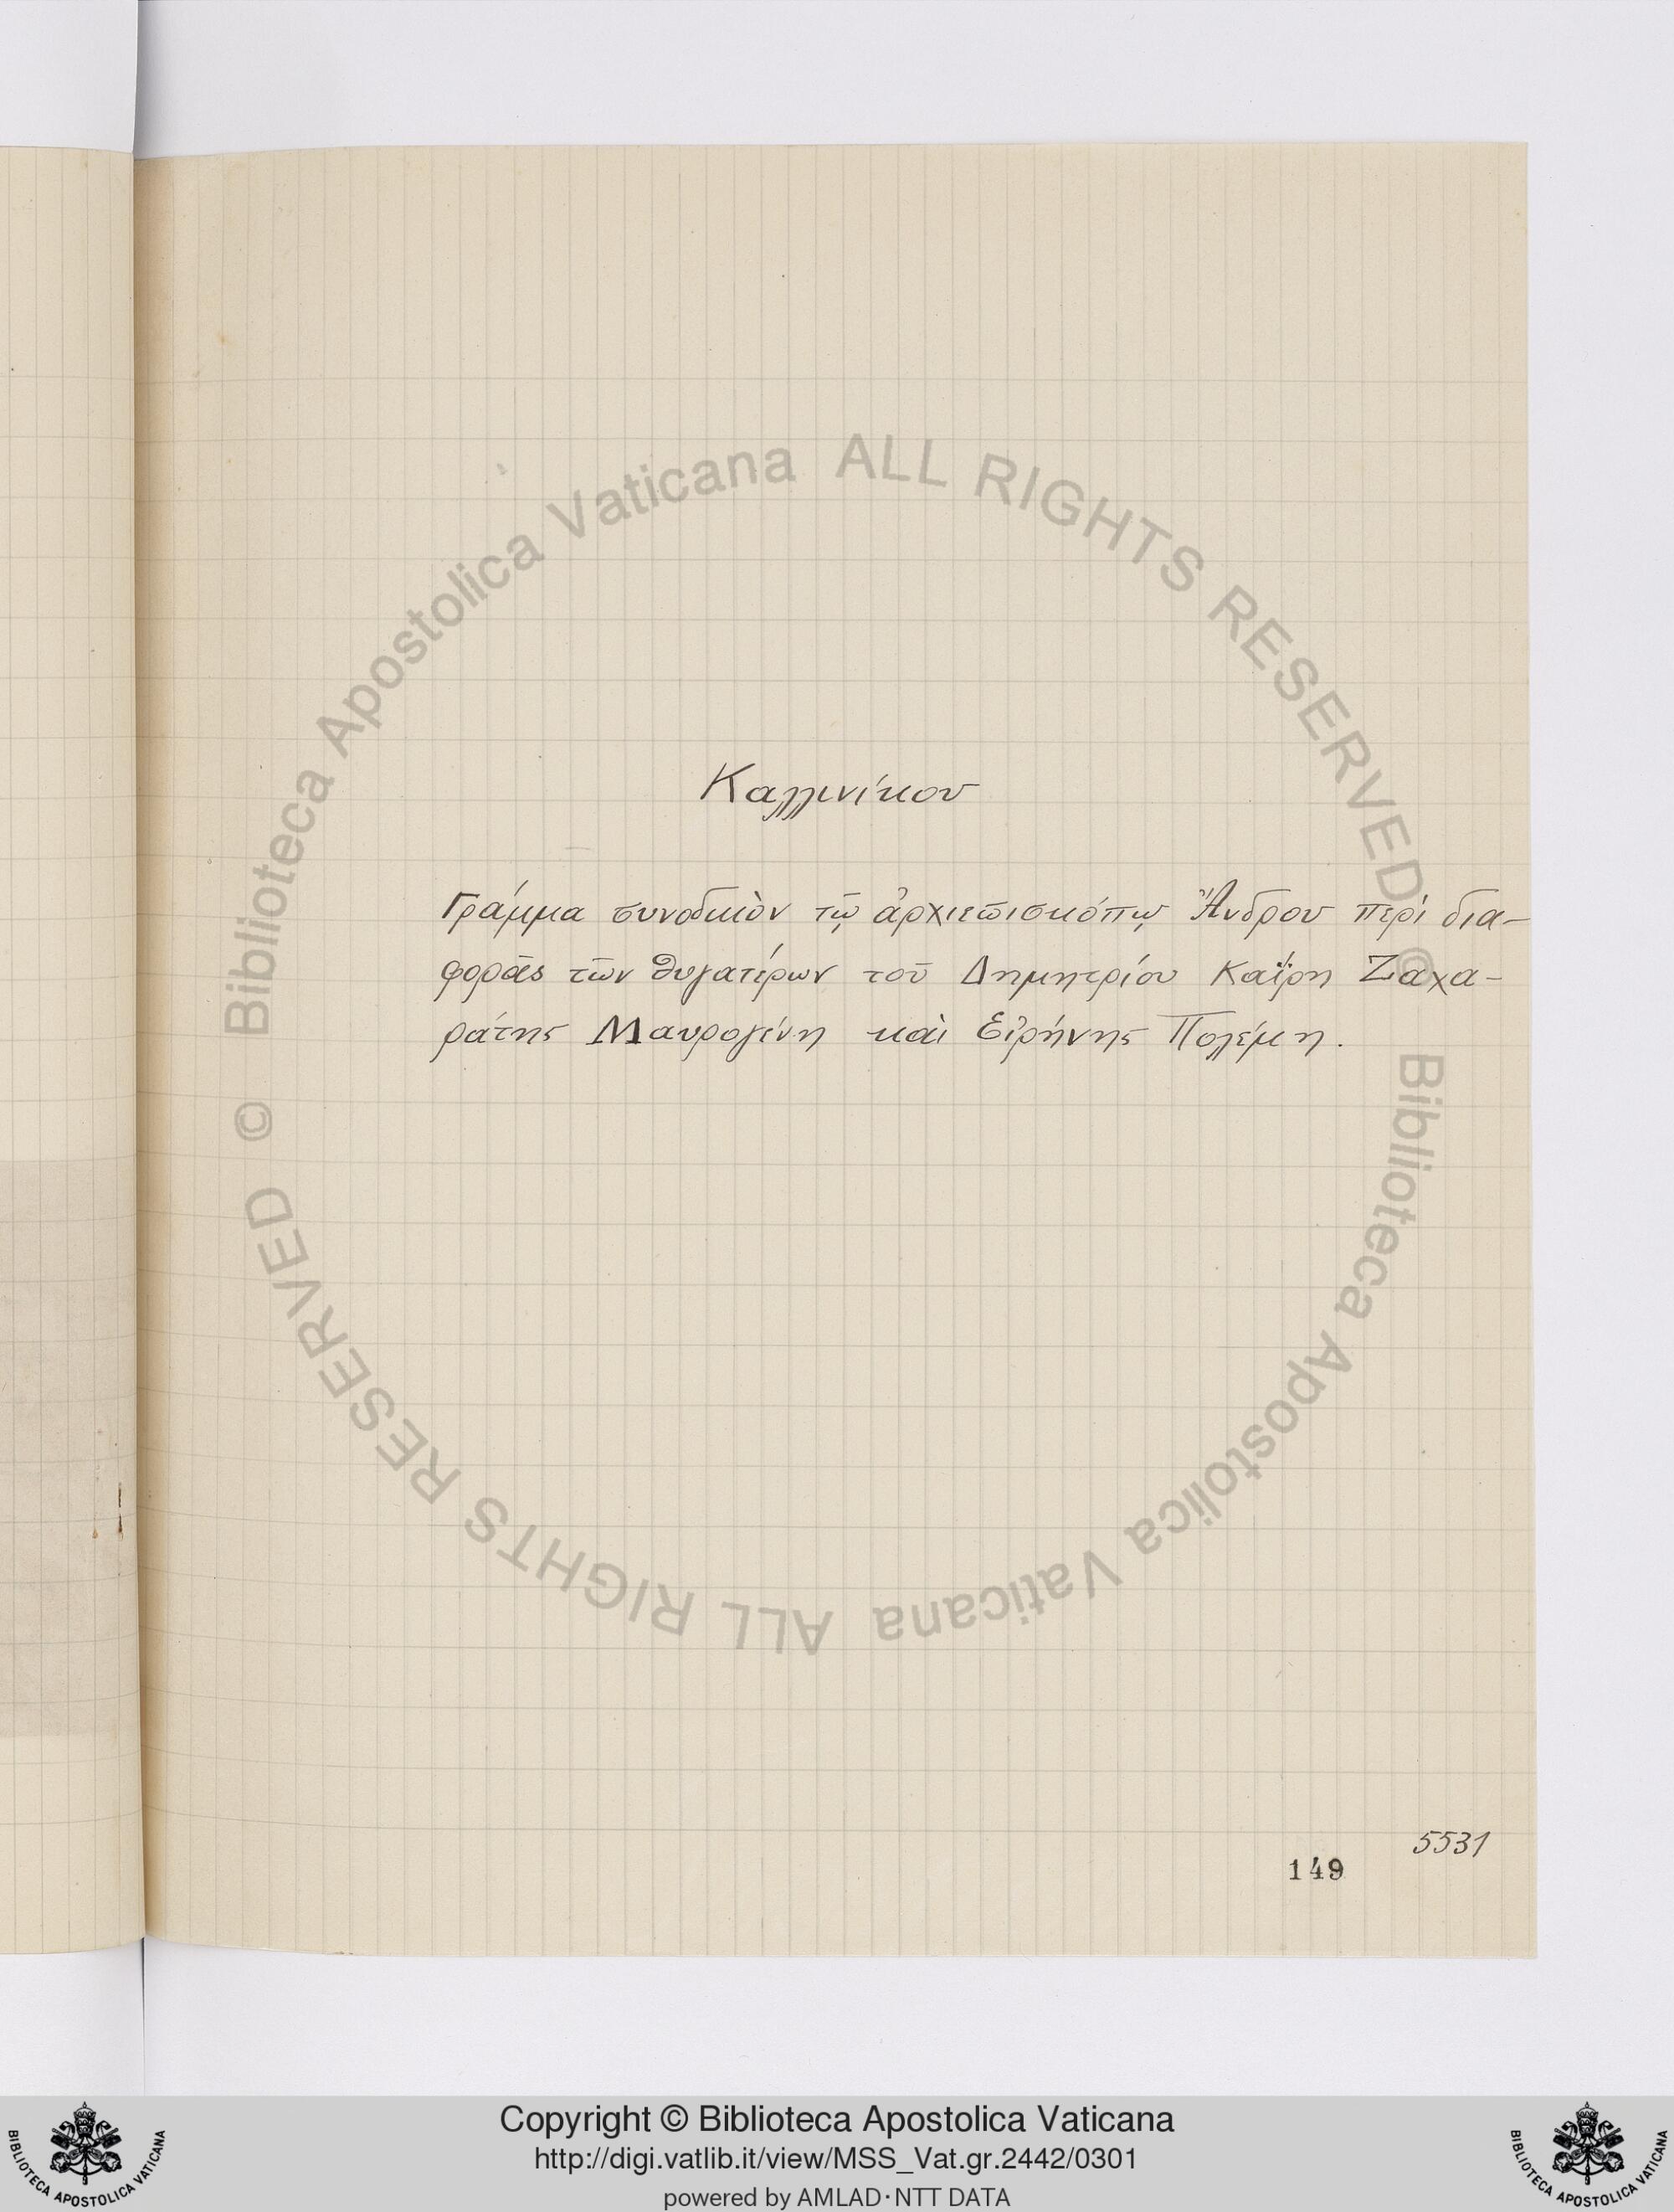 Καλλινίκου
Γράμμα συνοδικὸν τῷ ἀρχιεπισκόπῳ Ἄνδρου περὶ δια-
φορᾶς τῶν θυγατέρων τοῦ Δημητρίου Καΐρη Ζαχα-
ράτης Μαυρογένη καὶ Εἰρήνης Πολέμη.
5531
149
© Biblioteca Apostolica Vaticana ALL RIGHTS RESERVED
© Biblioteca Apostolica Vaticana ALL RIGHTS RESERVED
BIBLIOTECA APOSTOLICA VATICANA
Copyright © Biblioteca Apostolica Vaticana
http://digi.vatlib.it/view/MSS_Vat.gr.2442/0301
powered by AMLAD·NTT DATA
BIBLIOTECA APOSTOLICA VATICANA